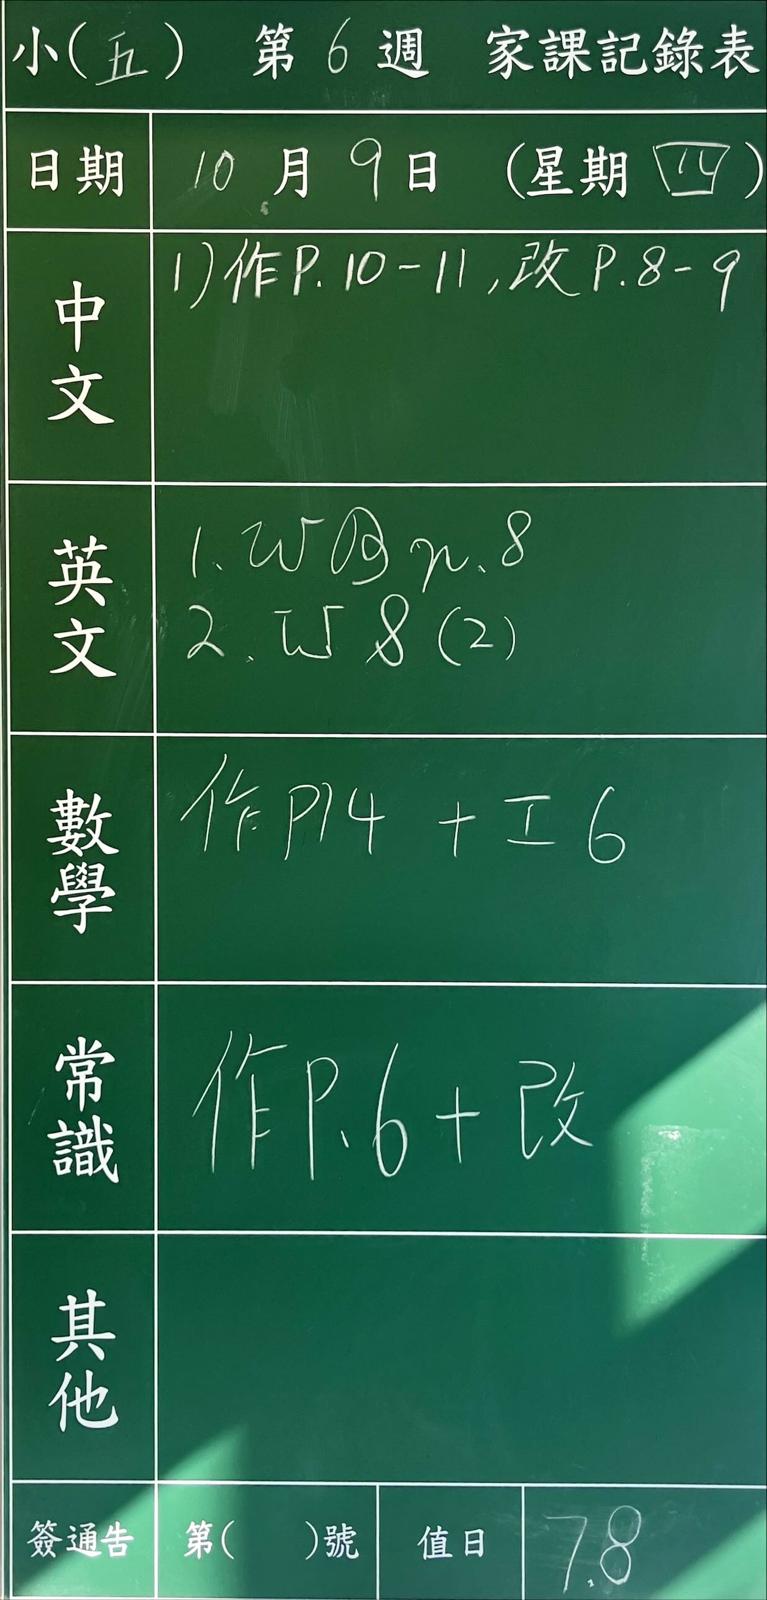 小(五) 第6週 家課記錄表
日期 10月9日 (星期四)
中文 1)作P.10-11,改P.8-9
英文 1. WB p.8
2. W8(2)
數學 作P14 + 工6
常識 作P.6+改
其他
簽通告 第( )號 值日 7.8